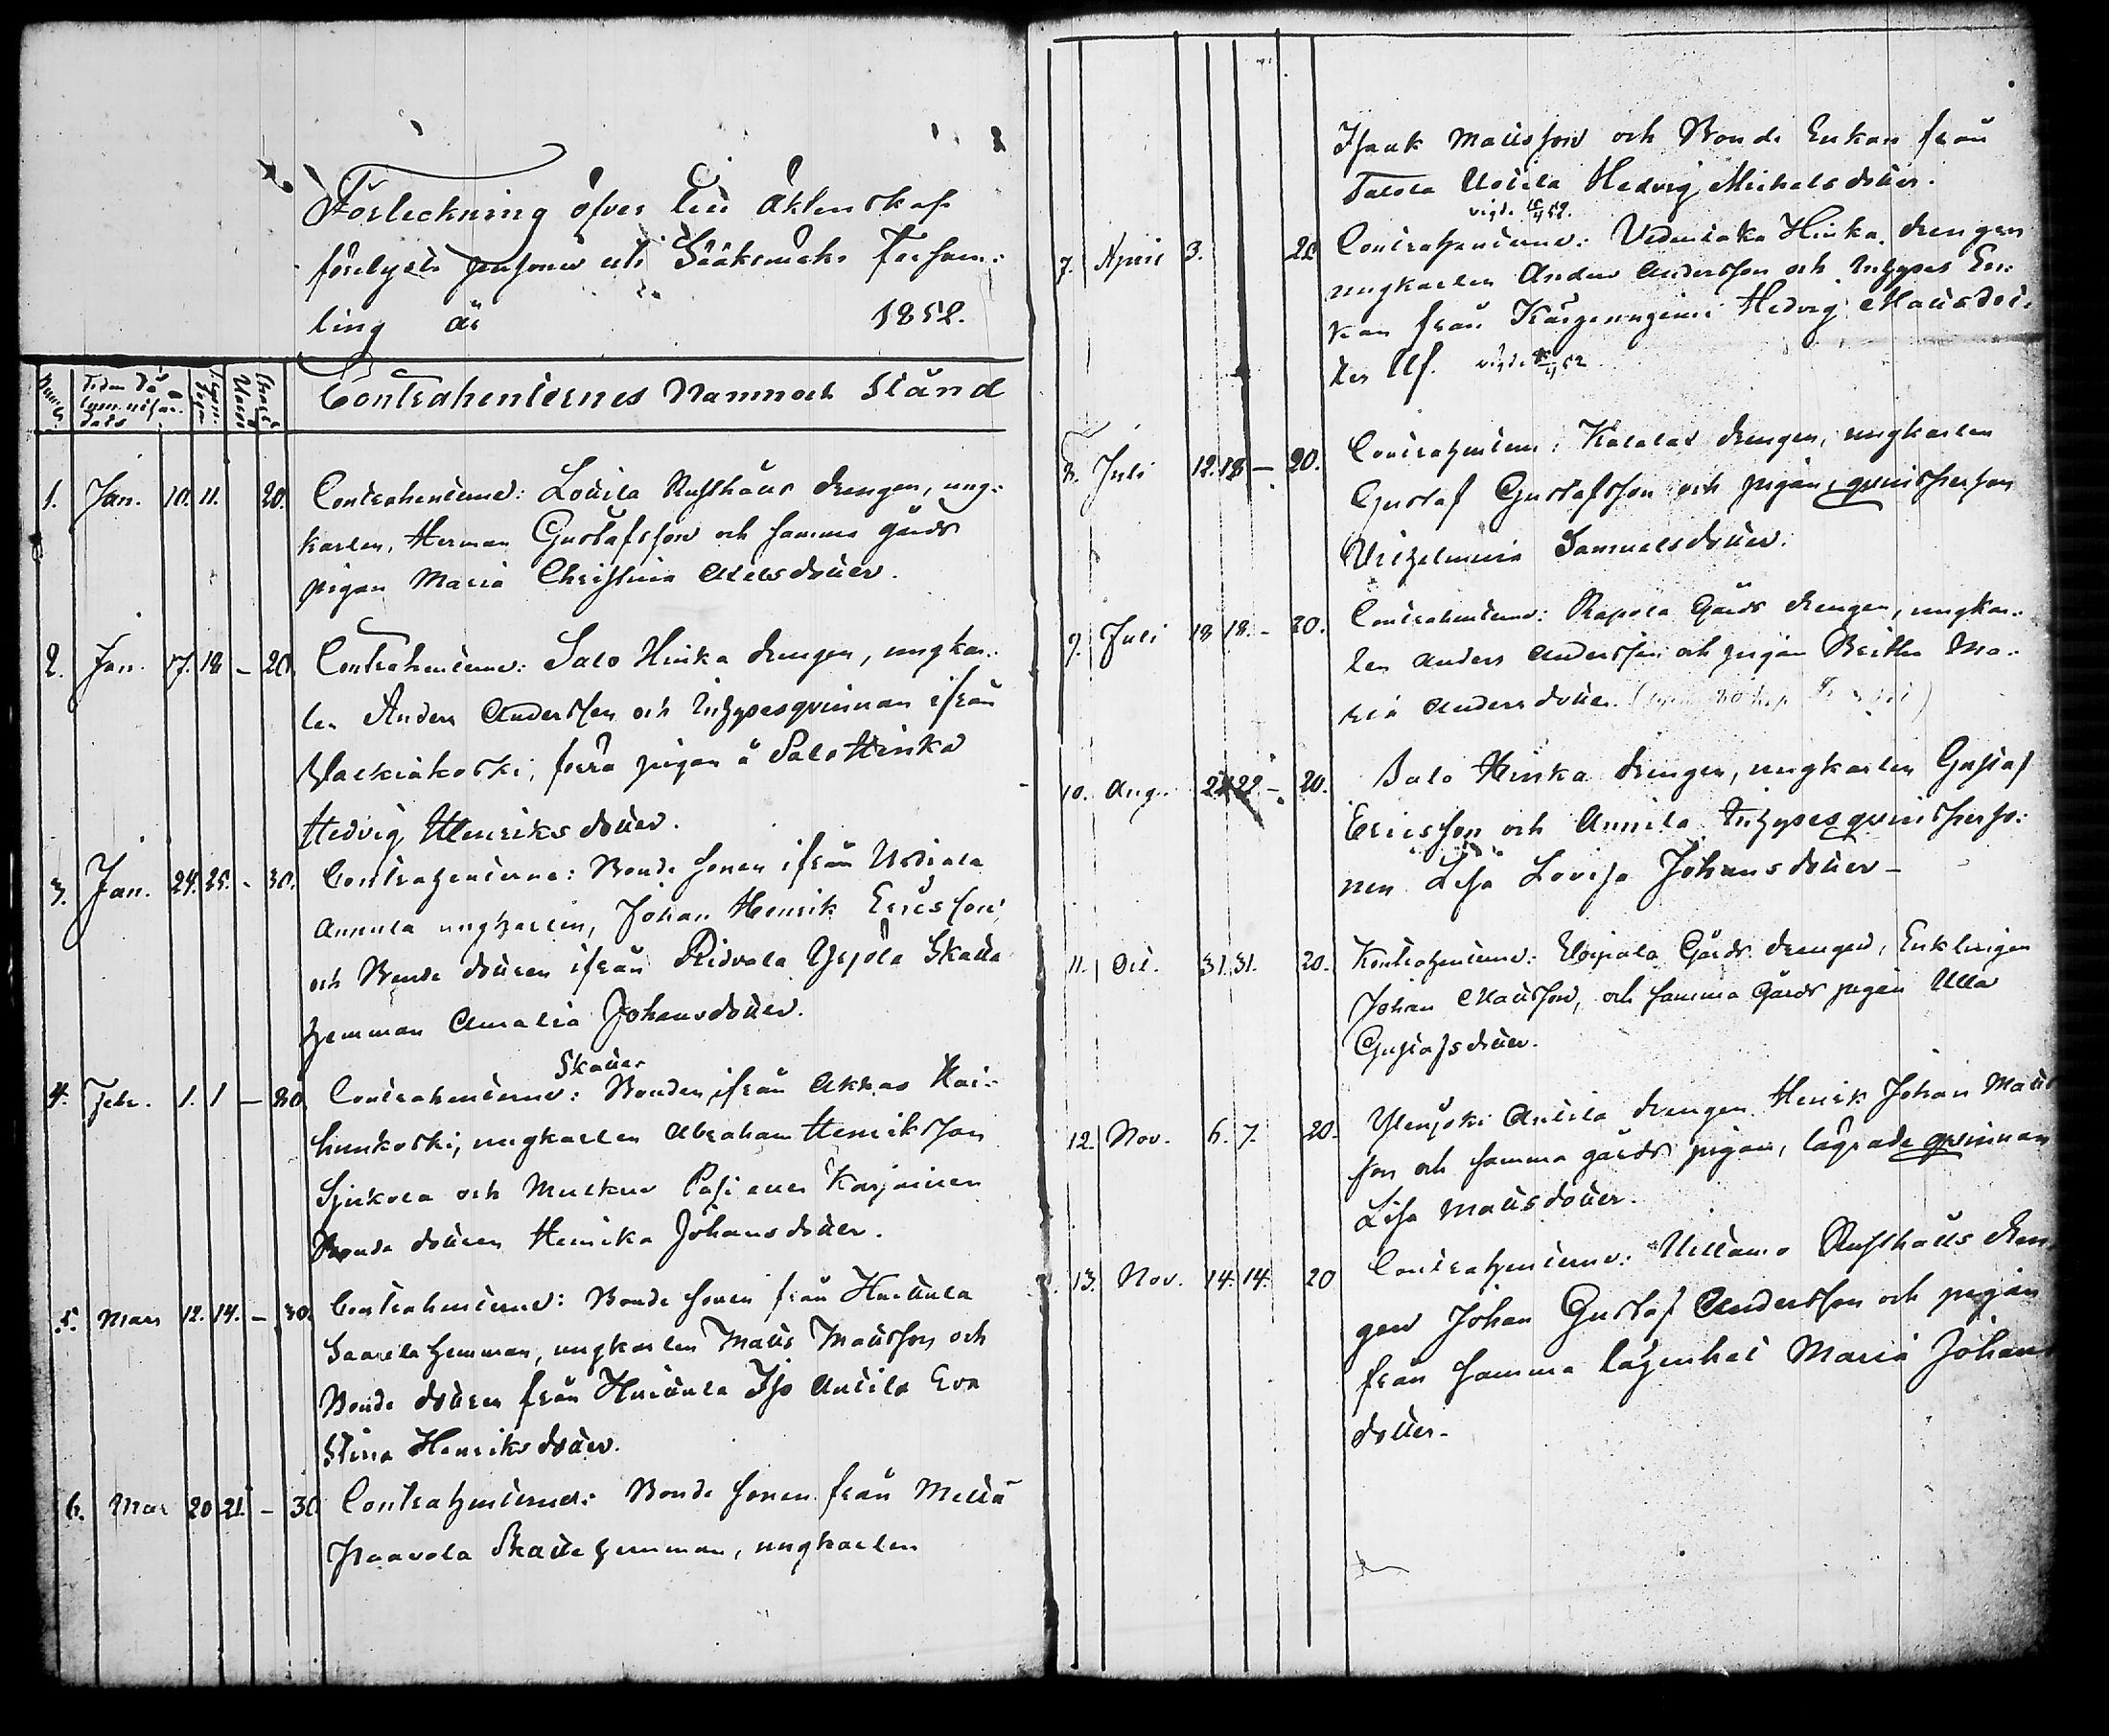 Förteckning öfver till äktenskap
förelyste personer uti Sääksmäki Försam:
ling år 1852.
Contrahenternes Namn och Stånd
1. Jan. 10. 11. 20. Contrahenterne: Lottila Rusthåls drengen, ung:
karlen, Herman Gustafsson och samma gårds
pigan Maria Christina Axelsdotter.
2. Jan. 17. 18 – 20. Contrahenterne: Salo Hinka drengen, ungkar:
len Anders Andersson och Inhysesqvinnan ifrån
Walkiakoski, förra pigan å Salo Hinka
Hedvig Henriksdotter.
3. Jan. 24. 25. - 30. Contrahenterne: Bonde sonen ifrån Urdiala
Annula ungkarlen, Johan Henrik Ericsson,
och Bonde dottren ifrån Ridvala Yrjölä Skatte
hemman Amalia Johansdotter.
Skatte
4. Febr. 1. 1 – 30. Contrahenterne: Bonden ifrån Akkas Kai:
ungkarlen Abraham Henriksson
och Karjainen
Bonde dottren Henrika Johansdotter.
5. Mars 12. 14. – 30. Contrahenterne: Bonde sonen från Huittula
Saarela hemman, ungkarlen Matts Mattsson och
Bonde dottren från Huittula Iso Anttila Eva
Stina Henriksdotter.
6. Mar 20 21. – 30. Contrahenterne: Bonde sonen från Metsä
Paavola Skatte hemman, ungkarlen
Isaak Mattsson och Bonde Enkan från
Uotila Hedvig Michelsdotter.
7. April 3. 20 Contrahenterne: Hinka drengen
ungkarlen Anders Andersson och Inhyses En:
kan från Kärjenniemi Hedvig Mattsdot:
ter Ulf.
8. Juli 12. 18 – 20. Contrahenterne: drengen, ungkarlen
Gustaf Gustafsson och pigan, qvinspersson
Vilhelmina Samuelsdotter.
9. Juli 18 18. – 20. Contrahenterne: Rapola Gårds drengen, ungkar:
len Anders Andersson och pigan Britha Ma:
ria Andersdotter.
10. Aug. 22 – 20. Salo Hinka drengen, ungkarlen Gustaf
Ericsson och Annila Inhysesqvinsperso:
nen Lisa Lovisa Johansdotter –
11. Oct. 31. 31. 20. Kontrahenterne: Voipala Gårds drengen, Enklingen
Johan Mattsson, och samma Gårds pigan Ulla
Gustafsdotter.
12. Nov. 6. 7. 20. Ylenjoki Anttila drengen Henrik Johan Matts
son och samma gårds pigan, lägrade qvinnan
Lisa Mattsdotter.
13. Nov. 14. 14. 20 Contrahenterne: Uittamo Rusthålls dren
gen Johan Gustaf Andersson och pigan
från samma lägenhet Maria Johans
dotter –